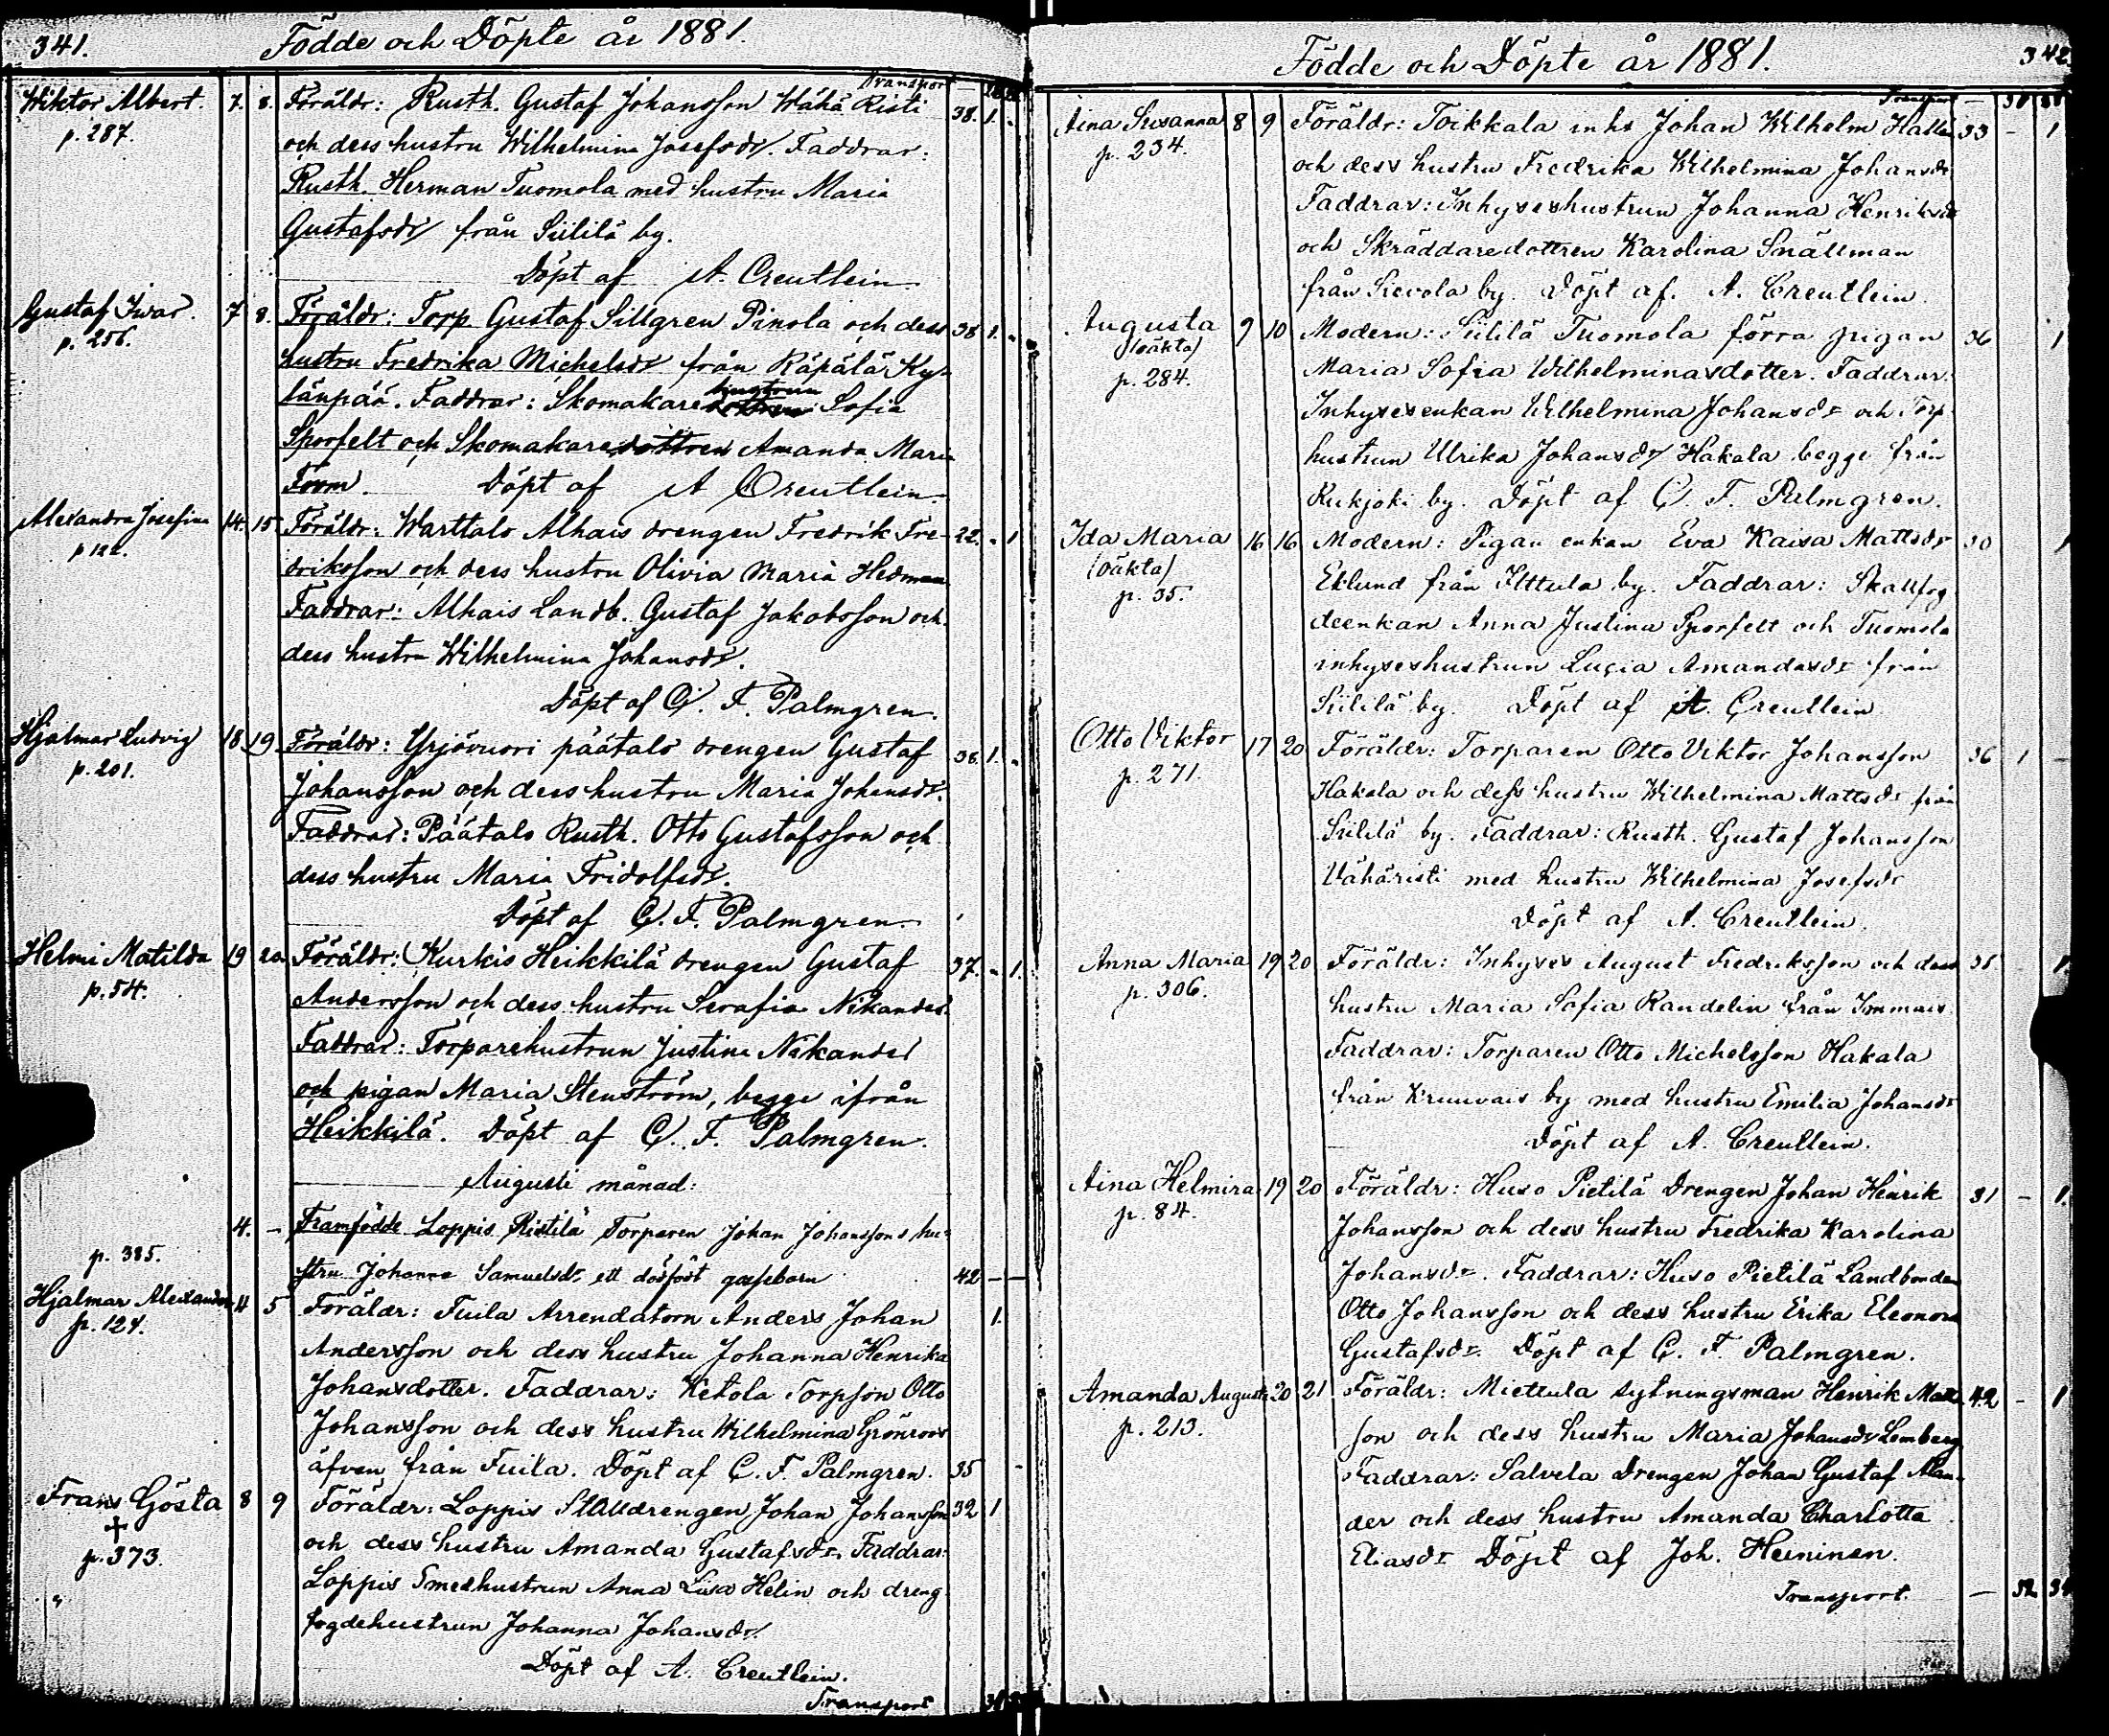 341.
Födde och Döpte år 1881.
Transport
Wiktor Albert. 7. 8. Föräldr: Rusth. Gustaf Johansson Wähä Risti 38. 1. -
p. 287. och dess hustru Wilhelmina Josefsdr. Faddrar:
Rusth. Herman Tuomola med hustru Maria
Gustafsdr från Siililä by.
Döpt af A. Creutlein
Gustaf Iwar. 7 8. Föräldr: Torp Gustaf Sillgren Pinola och dess 38 1. -
p. 256. hustru Fredrika Michelsdr från Räpälä Ky-
länpää. Faddrar: Skomakare hustrun Sofia
Sporfelt och Skomakaredottren Amanda Maria
Form. Döpt af A Creutlein.
Alexandra Josefina 14. 15 Föräldr: Warttalo Alhais drengen Fredrik Fre- 22. - 1
p 122. driksson och dess hustru Olivia Maria Hedman
Faddrar: Alhais Landb. Gustaf Jakobsson och
dess hustru Wilhelmina Johansdr.
Döpt af C. F. Palmgren.
Hjalmar Ludvig 18 19 Föräldr: Yrjövuori päätalo drengen Gustaf 38. 1. -
p. 201. Johansson och dess hustru Maria Johansdr.
Faddrar: Päätalo Rusth. Otto Gustafsson och
dess hustru Maria Fridolfsdr.
Döpt af C. F. Palmgren.
Helmi Matilda 19 20. Föräldr: Kurkis Heikkilä drengen Gustaf 37. - 1.
p. 54. Andersson och dess hustru Serafia Nikander.
Faddrar: Torparehustrun Justina Nikander
och pigan Maria Stenström, begge ifrån
Heikkilä. Döpt af C. F. Palmgren.
Augusti månad:
4. - Framfödde Loppis Ristilä Torparen Johan Johanssons hu-
p. 385. stru Johanna Samuelsdr, ett dödfödt gossebarn 42 - -
Hjalmar Alexander 4 5 Föräldr: Tuila Arrendatorn Anders Johan 1.
p. 124. Andersson och dess hustru Johanna Henrika
Johansdotter. Faddrar: Ketola Torpson Otto
Johansson och dess hustru Wilhelmina Grönroos
äfven från Tuila. Döpt af C. F. Palmgren. 35 -
Frans Gösta 8 9 Föräldr: Loppis Stalldrengen Johan Johansson 32 1
p. 373. och dess hustru Amanda Gustafsdr. Faddrar:
Loppis Smedhustrun Anna Lisa Helin och dreng-
fogdehustrun Johanna Johansdr.
Döpt af A. Creutlein.
Transport
Födde och Döpte år 1881.
342.
Transport
Aina Susanna 8 9 Föräldr: Toikkala inhs Johan Wilhelm Hallén 33 - 1
p. 234. och dess hustru Fredrika Wilhelmina Johansdr
Faddrar: Inhyseshustrun Johanna Henriksdr
och Skräddaredottren Karolina Snällman
från Sievola by. Döpt af. A. Creutlein
Augusta 9 10 Modern: Siililä Tuomola förra pigan 36 1
(oäkta) Maria Sofia Wilhelminasdotter. Faddrar:
p. 284. Inhysesenkan Wilhelmina Johansdr och Torp-
hustrun Ulrika Johansdr Hakala begge från
Rukjoki by. Döpt af C. F. Palmgren.
Ida Maria 16 16 Modern: Pigan enkan Eva Kaisa Mattsdr 30 1
(oäkta) Eklund från Ilttula by. Faddrar: Skallfog-
p. 35. deenkan Anna Justina Sporfelt och Tuomola
inhyseshustrun Lucia Amandasdr från
Siililä by. Döpt af A. Creutlein
Otto Viktor 17 20 Föräldr: Torparen Otto Viktor Johansson 36 1 -
p. 271. Hakala och dess hustru Wilhelmina Mattsdr från
Siililä by. Faddrar: Rusth. Gustaf Johansson
Vähäristi med hustru Wilhelmina Josefsdr
Döpt af A. Creutlein.
Anna Maria 19 20 Föräldr: Inhyses August Fredriksson och dess 35 1
p. 306. hustru Maria Sofia Randelin från Immais.
Faddrar: Torparen Otto Michelsson Hakala
från Kruuvais by med hustru Emilia Johansdr
Döpt af A. Creutlein.
Aina Helmira 19 20 Föräldr: Huso Pietilä Drengen Johan Henrik 31 - 1.
p. 84. Johansson och dess hustru Fredrika Karolina
Johansdr. Faddrar: Huso Pietilä Landbonden
Otto Johansson och dess hustru Erika Eleonora
Gustafsdr. Döpt af C. F. Palmgren.
Amanda Augusta 20 21 Föräldr: Miettula sytningsman Henrik Matts- 42 - 1
p. 213. son och dess hustru Maria Johansdr Lemberg
Faddrar: Salvela Drengen Johan Gustaf Man-
der och dess hustru Amanda Charlotta
Eliasdr Döpt af Joh. Heininen.
Transport. - 32